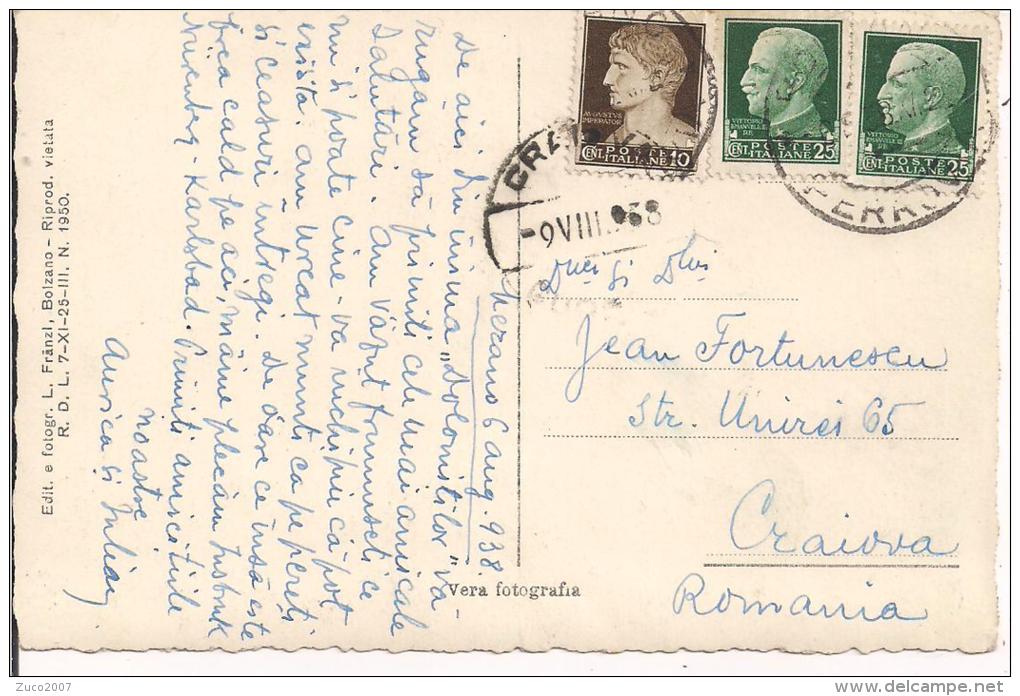 Edit. e fotogr. L. Fränzl, Bolzano - Riprod. vietata
R. D. L. 7-XI-25-III. N. 1950.
Merano 6 aug. 938.
De aici din inima „Dolomitilor" vă
rugăm să primiti cele mai amicale
salutări. Am văzut frumuseti ce
nu si poate cine-va inchipui că pot
exista. Am urcat munti ca pereti
si ceasuri intregi. De oare ce insă este
prea cald pe aci, mâine plecăm Insbruk
Nürenberg - Karlsbad. Primiti amicitiile
noastre
Aurica si Iulian
Vera fotografia
AUGVSTVS
IMPERATOR
POSTE
CENT. ITALIANE 10
VITTORIO
EMANVELE III
RE
POSTE
CENT. ITALIANE 25
VITTORIO
EMANVELE III
RE
POSTE
CENT. ITALIANE 25
CRAIOVA
-9 VIII. 938
FERROV
Dnei si Dlui
Jean Fortunescu
Str. Unirei 65
Craiova
Romania
Zuco2007
delcampe.net